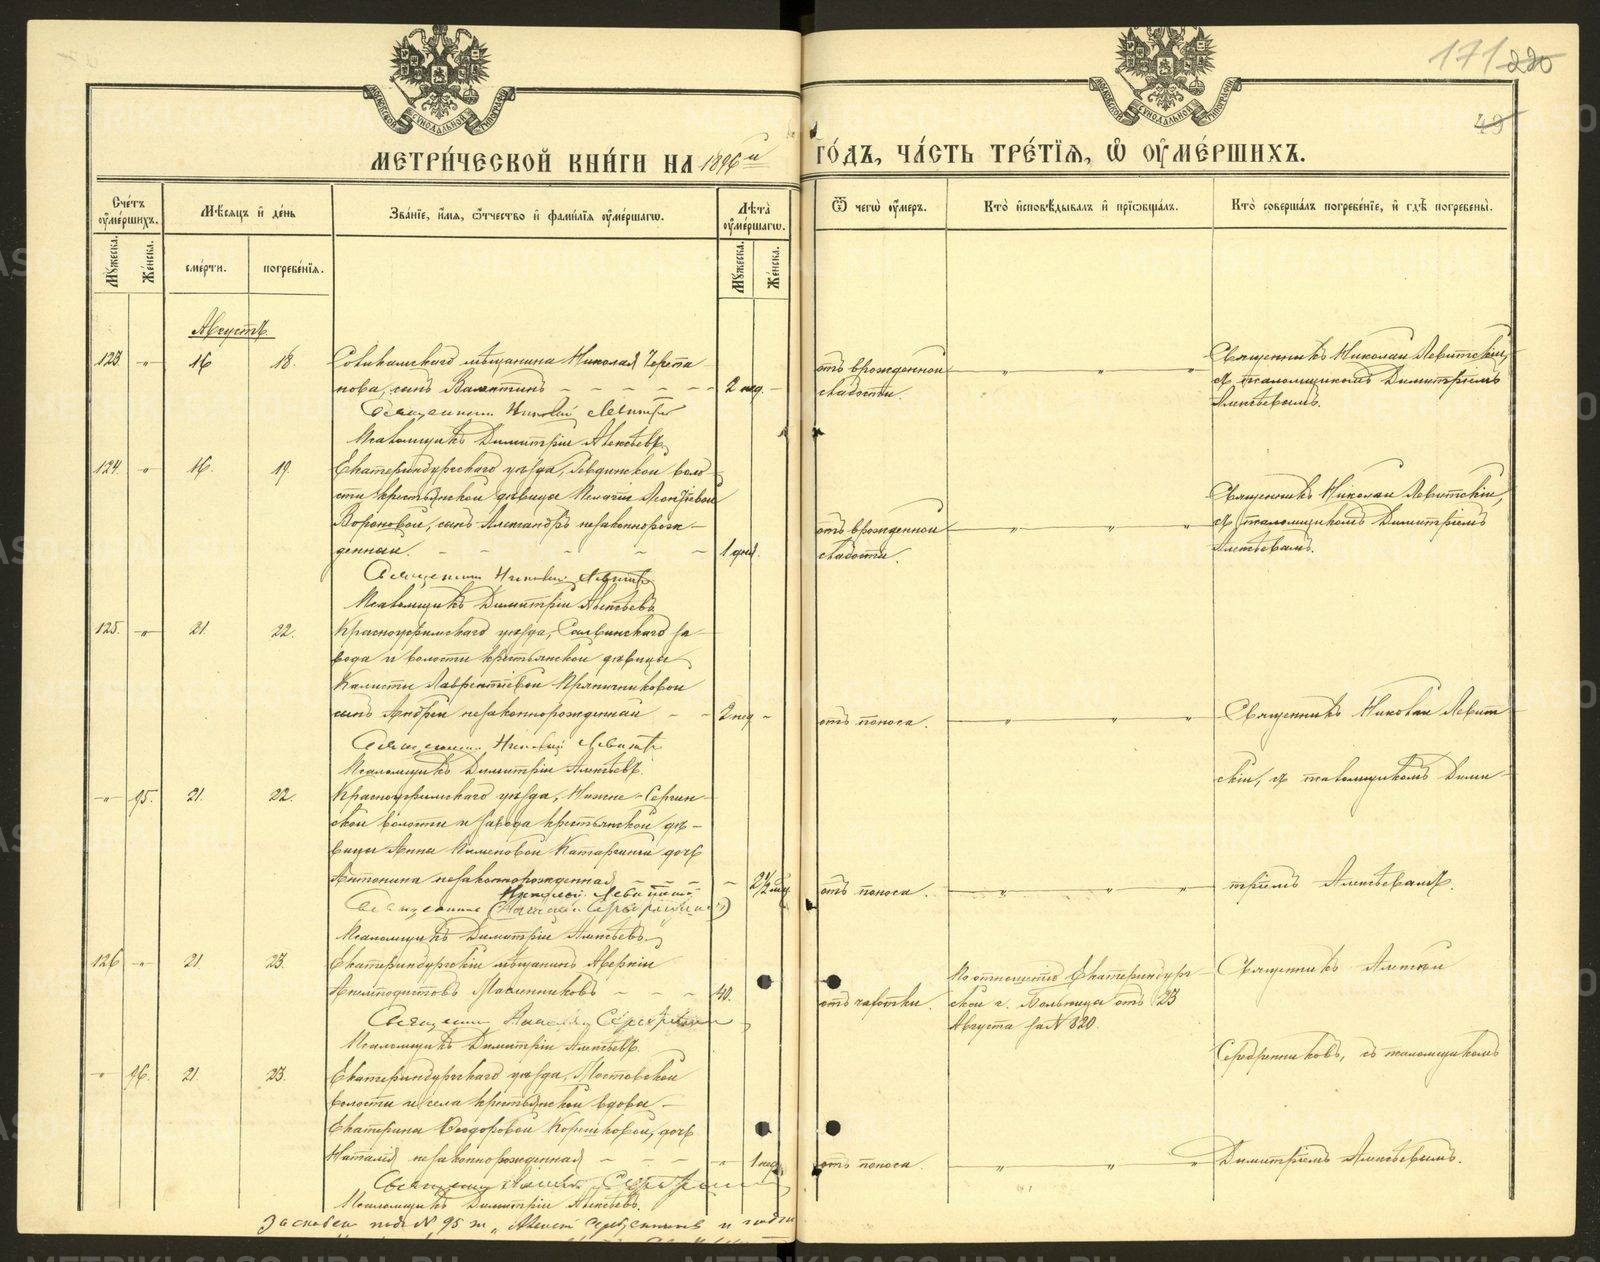 171 220
49
МЕТРИ́ЧЕСКОЙ КНИ́ГИ НА 1896й ГО́ДЪ, ЧА́СТЬ ТРЕ́ТІЯ, Ѽ ОУ҆МЕ́РШИХЪ.
Сче́тъ оу҆ме́ршихъ.
Мꙋжеска.
Же́нска.
Мѣ́сяцъ и҆ де́нь
сме́рти.
погребе́нїѧ.
Зва́нїе, и҆́мѧ, ѻ҆́тчество и҆ фами́лїѧ оу҆ме́ршагѡ.
Лѣ́та оу҆ме́ршагѡ.
Мꙋжеска.
Же́нска.
Ѿ чегѡ̀ оу҆́меръ.
Кто̀ и҆сповѣ́дывалъ и҆ прїѡбща́лъ.
Кто̀ соверша́лъ погребе́нїе, и҆ гдѣ̀ погребены̀.
Августъ.
123 - " - 16 18.
Соликамскаго мѣщанина Николая Черепа-
нова, сынъ Валентинъ - - - - - 2 нед. -
отъ врожденной
слабости.
Священникъ Николай Левитскій,
съ псаломщикомъ Димитріемъ
Алексѣевымъ.
Священникъ Николай Левитскій
Псаломщикъ Димитрій Алексѣевъ.
124. " 16. 19.
Екатеринбургскаго уѣзда, Ревдинской воло-
сти крестьянской дѣвицы Пелагіи Леонтіевой
Вороновой, сынъ Александръ незаконнорож-
денный. - - - - - 1 дня.
отъ врожденной
слабости.
Священникъ Николай Левитскій,
съ псаломщикомъ Димитріемъ
Алексѣевымъ.
Священникъ Николай Левитскій
Псаломщикъ Димитрій Алексѣевъ
125. - " - 21. 22.
Красноуфимскаго уѣзда, Саранинскаго за-
вода и волости крестьянской дѣвицы
Калисты Лаврентіевой Пряничниковой
сынъ Андрей незаконнорожденный - - 2 нед -
отъ поноса.
Священникъ Николай Левит-
Священникъ Николай Левитскій
Псаломщикъ Димитрій Алексѣевъ.
скій, съ псаломщикомъ Дими-
- " - 95. 21. 22.
Красноуфимскаго уѣзда, Нижне-Сергин-
ской волости и завода крестьянской дѣ-
вицы Анны Пименовой Катаргиной дочь
Антонина незаконнорожденная - - - - 2 1/2 мѣс.
отъ поноса.
тріемъ Алексѣевымъ.
Николай Левитскій
Священникъ (Алексій Серебренниковъ)
Псаломщикъ Димитрій Алексѣевъ.
126 - " - 21. 23.
Екатеринбургскій мѣщанинъ Аверкій
Анемподистовъ Масленниковъ - - - 40.
отъ чахотки.
По отношенію Екатеринбург-
ской г. Больницы отъ 23
Августа за № 820.
Священникъ Алексій
Священникъ Алексій Серебренниковъ
Псаломщикъ Димитрій Алексѣевъ.
Серебренниковъ, съ псаломщикомъ
- " 96. 21. 23.
Екатеринбургскаго уѣзда, Мостовской
волости и села крестьянской вдовы
Екатерины Ѳеодоровой Корешковой, дочь
Наталія незаконнорожденная - - - " 1 нед.
отъ поноса.
Димитріемъ Алексѣевымъ.
Священникъ Алексій Серебренниковъ
Псаломщикъ Димитрій Алексѣевъ.
За скобки подъ № 95 ж „Алексій Серебренниковъ и